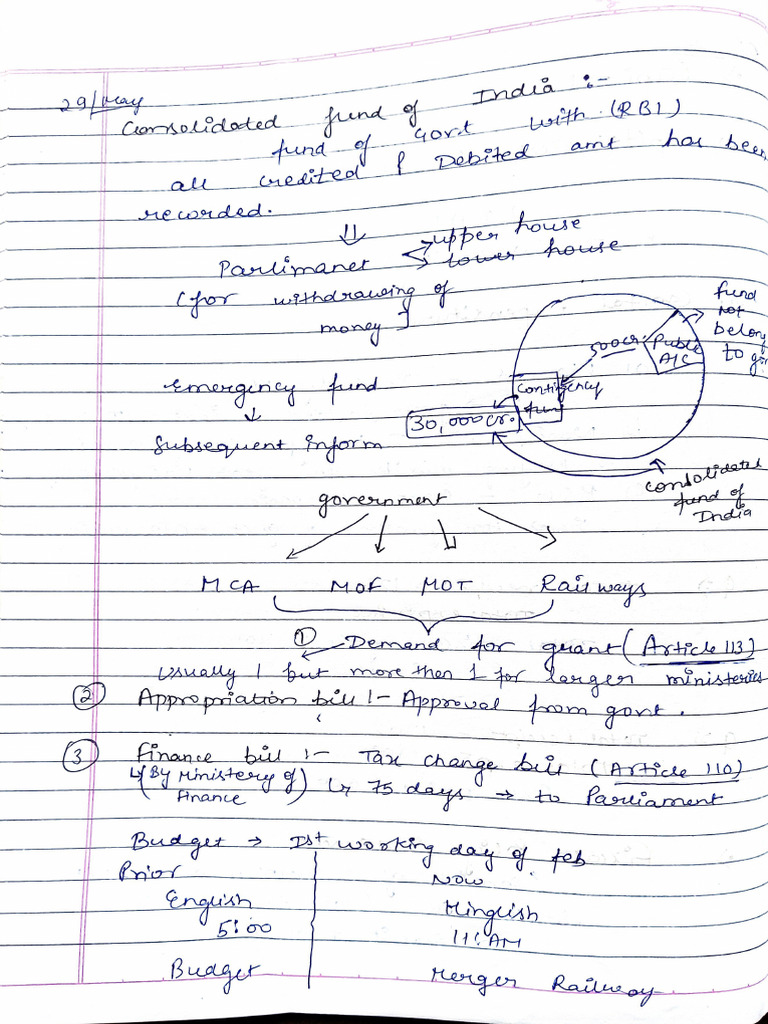 29/May
Consolidated fund of India :-
fund of Govt with (RBI)
all credited & Debited amt has been
recorded.
Parlimanet
upper house
lower house
(for withdrawing of
money]
fund
not
belong
to
500cr.
Public
A/C
Emergency fund
Contingency
fun
30,000 cr.
Subsequent inform
consolidated
fund of
India
government
MCA MOF MOT Railways
① Demand for grant (Article 113)
Usually 1 but more then 1 for larger ministeries
② Appropriation bill :- Approval from govt.
③ Finance bill :- Tax change bill (Article 110)
(By Ministery of
Finance) 75 days → to Parliament
Budget → Ist working day of feb
Prior Now
English Hinglish
5:00 11: AM
Budget Merger Railway